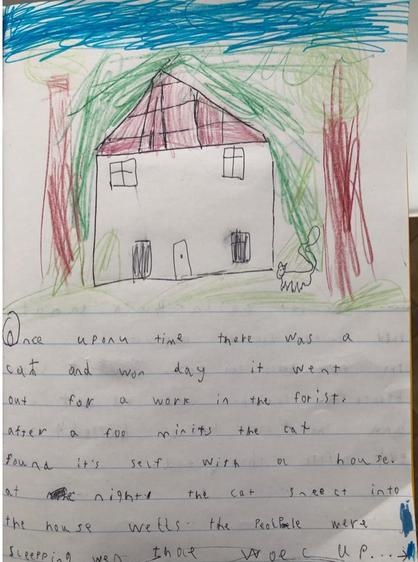 Once uponu time there was a
cat and won day it went
out for a work in the forist.
after a foo minits the cat
found it's self with a house.
at night the cat sneect into
the house wells the Peolpele were
sleepping wen thoe woec up...